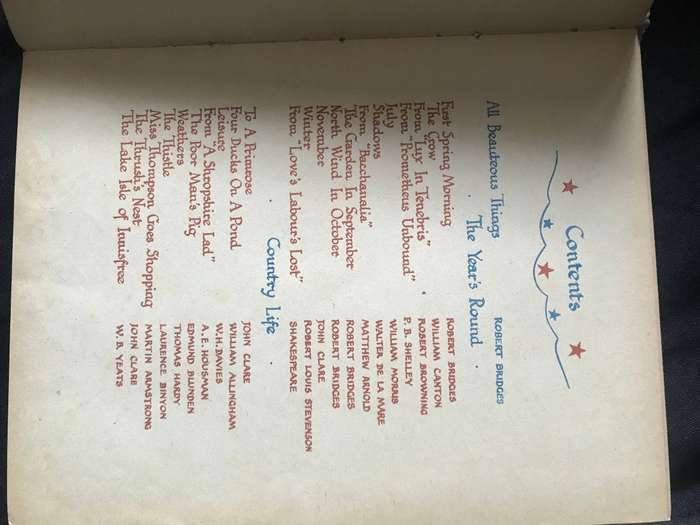 Contents
All Beauteous Things ROBERT BRIDGES
The Year's Round
First Spring Morning ROBERT BRIDGES
The Crow WILLIAM CANTON
From "Lux In Tenebris" ROBERT BROWNING
From "Prometheus Unbound" P. B. SHELLEY
July WILLIAM MORRIS
Shadows WALTER DE LA MARE
From "Bacchanalia" MATTHEW ARNOLD
The Garden In September ROBERT BRIDGES
North Wind In October ROBERT BRIDGES
November JOHN CLARE
Winter ROBERT LOUIS STEVENSON
From "Love's Labour's Lost" SHAKESPEARE
Country Life
To A Primrose JOHN CLARE
Four Ducks On A Pond WILLIAM ALLINGHAM
Leisure W.H. DAVIES
From "A Shropshire Lad" A. E. HOUSMAN
The Poor Man's Pig EDMUND BLUNDEN
Weathers THOMAS HARDY
The Thistle LAURENCE BINYON
Miss Thompson Goes Shopping MARTIN ARMSTRONG
The Thrush's Nest JOHN CLARE
The Lake Isle of Innisfree W. B. YEATS